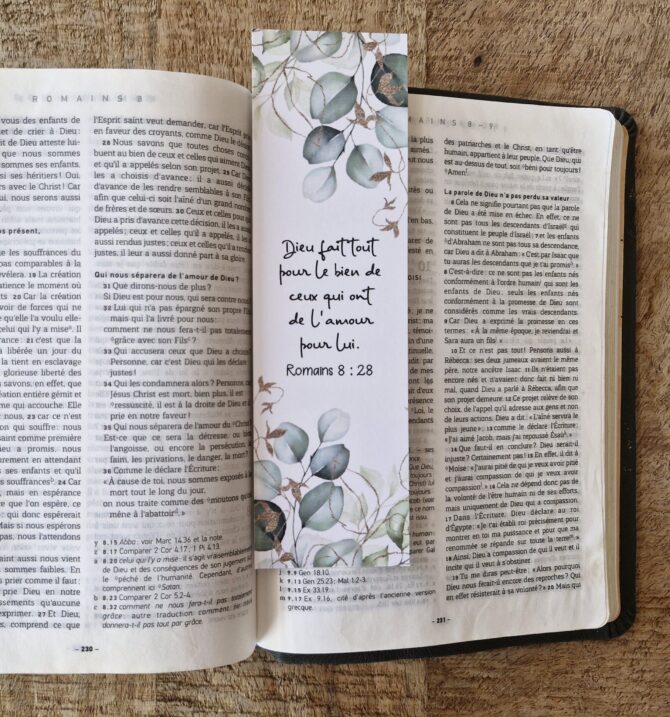 ROMAINS 8
vous des enfants de
et de crier à Dieu :
it de Dieu atteste lui-
que nous sommes
sommes ses enfants,
si ses héritiers ! Oui,
ers avec le Christ ! Car
lui, nous serons aussi
os présent,
ue les souffrances du
pas comparables à la
évélera. 19 La création
atience le moment où
20 Car la création
voir de forces qui ne
u'elle l'a voulu elle-
celui qui l'y a mise
! : 21 c'est que la
à libérée un jour du
la tient en esclavage
glorieuse liberté des
s savons, en effet, que
ntière gémit et
me qui accouche. Elle
23 car ce n'est
on qui souffre: nous
tant comme première
Dieu a promis, nous
attendant que Dieu
s ses enfants et qu'il
souffrances. 24 Car
és, mais en espérance
e que l'on espère, ce
qui donc espérerait
Mais si nous espérons
ns pas, nous l'attendons
saint aussi nous vient
sommes faibles. En
rier comme il faut :
prie Dieu en notre
issements qu'aucune
exprimer. 27 Et Dieu,
s, comprend ce que
l'Esprit saint veut demander, car l'Esprit prie
en faveur des croyants, comme Dieu le désire.
28 Nous savons que toutes choses contri-
buent au bien de ceux et celles qui aiment Dieu
et qu'il a appelés selon son projet. 29 Car Dieu
les a choisis d'avance ; il a aussi décidé
d'avance de les rendre semblables à son Fils,
afin que celui-ci soit l'aîné d'un grand nombre
de frères et de sœurs. 30 Ceux et celles pour qui
Dieu a pris d'avance cette décision, il les a aussi
appelés ; ceux et celles qu'il a appelés, il les a
aussi rendus justes ; ceux et celles qu'il a rendus
justes, il leur a aussi donné part à sa gloire.
Qui nous séparera de l'amour de Dieu ?
31 Que dirons-nous de plus ?
Si Dieu est pour nous, qui sera contre nous ?
32 Lui qui n'a pas épargné son propre Fils
mais qui l'a livré pour nous :
comment ne nous fera-t-il pas totalement
grâce avec son Fils ?
33 Qui accusera ceux que Dieu a choisis ?
Personne, car c'est Dieu qui les déclare
justes !
34 Qui les condamnera alors ? Personne, car
Jésus Christ est mort, bien plus, il est
ressuscité, il est à la droite de Dieu et il
prie en notre faveur !
35 Qui nous séparera de l'amour du Christ ?
Est-ce que ce sera la détresse, ou bien
l'angoisse, ou encore la persécution, la
faim, les privations, le danger, la mort ?
36 Comme le déclare l'Écriture :
« À cause de toi, nous sommes exposés à la
mort tout le long du jour,
on nous traite comme des moutons qu'on
mène à l'abattoir. »
y 8.15 Abba : voir Marc 14.36 et la note.
z 8.17 Comparer 2 Cor 1.7 ; 1 Pi 4.13.
a 8.20 celui qui l'y a mise : il s'agit vraisemblablement
de Dieu et des conséquences de son jugement sur
le péché de l'humanité. Cependant, d'autres
comprennent ici Satan.
b 8.23 Comparer 2 Cor 5.2-4.
c 8.32 comment ne nous fera-t-il pas totalement
grâce: autre traduction comment ne nous
donnera-t-il pas tout par grâce.
– 230 –
Dieu fait tout
pour le bien de
ceux qui ont
de l'amour
pour lui.
Romains 8 : 28
MAINS 8 – 9
des patriarches et le Christ, en tant qu'être
humain, appartient à leur peuple. Que Dieu, qui
est au-dessus de tout, soit béni pour toujours !
Amen !
La parole de Dieu n'a pas perdu sa valeur
6 Cela ne signifie pourtant pas que la parole
de Dieu a été mise en échec. En effet, ce ne
sont pas tous les descendants d'Israël qui
constituent le peuple d'Israël ; 7 et les enfants
d'Abraham ne sont pas tous sa descendance,
car Dieu a dit à Abraham : « C'est par Isaac que
tu auras les descendants que je t'ai promis. »
8 C'est-à-dire : ce ne sont pas les enfants nés
conformément à l'ordre humain qui sont les
enfants de Dieu ; seuls les enfants nés
conformément à la promesse de Dieu sont
considérés comme les vrais descendants.
9 Car Dieu a exprimé la promesse en ces
termes : « À la même époque, je reviendrai et
Sara aura un fils. »
10 Et ce n'est pas tout ! Pensons aussi à
Rébecca : ses deux jumeaux avaient le même
père, notre ancêtre Isaac. 11 Ils n'étaient pas
encore nés et n'avaient donc fait ni bien ni
mal, quand Dieu a parlé à Rébecca afin que
son projet demeure. 12 Ce projet relève de son
choix, de l'appel qu'il adresse aux gens et non
de leurs actions. Dieu a dit : « L'aîné servira le
plus jeune » ; 13 comme le déclare l'Écriture :
« J'ai aimé Jacob, mais j'ai repoussé Ésaü. »
14 Que faut-il en conclure ? Dieu serait-il
injuste ? Certainement pas ! 15 En effet, il dit à
Moïse : « J'aurai pitié de qui je veux avoir pitié
et j'aurai compassion de qui je veux avoir
compassion. » 16 Cela ne dépend donc pas de
la volonté de l'être humain ni de ses efforts,
mais uniquement de Dieu qui a compassion.
17 Dans l'Écriture, Dieu déclare au roi
d'Égypte : « Je t'ai établi roi précisément pour
montrer en toi ma puissance et pour que ma
renommée se répande sur toute la terre. »
18 Ainsi, Dieu a compassion de qui il veut et il
incite qui il veut à s'obstiner.
19 Tu me diras peut-être : « Alors pourquoi,
Dieu nous ferait-il encore des reproches ? Qui
en effet résisterait à sa volonté ? » 20 Mais qui
j 9.9 Gen 18.10.
k 9.11 Gen 25.23; Mal 1.2-3.
l 9.15 Ex 33.19.
m 9.17 Ex 9.16, cité d'après l'ancienne version
grecque.
– 231 –